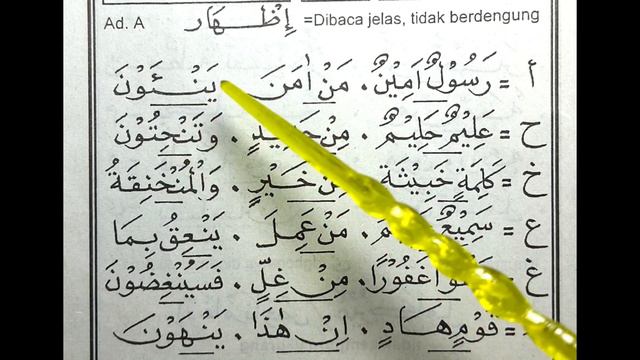 Ad. A إِظْـهَار =Dibaca jelas, tidak berdengung
أ = رَسُوْلٌ اَمِيْنٌ . مَنْ اٰمَنَ يَنْـئَوْنَ
ح = عَلِيْمٌ حَلِيْمٌ . مِنْ حَدِيْدٍ . وَتَنْحِتُوْنَ
خ = كَلِمَةٍ خَبِيْثَةٍ مِنْ خَيْرٍ . وَالْمُنْخَنِقَةُ
ع = سَمِيْعٌ . مَنْ عَمِلَ . يَنْعِقُ بِمَا
غ = غَفُوْرًا . مِنْ غِلٍّ . فَسَيُنْغِضُوْنَ
= قَوْمٍ هَادٍ . اِنْ هٰذَا . يَنْهَوْنَ